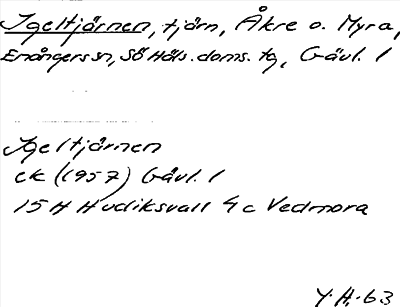 Igeltjärnen, tjärn, Åkre o. Myra,
Enångers sn, Sö Häls. doms. tg, Gävl. l
Igeltjärnen
ek (1957) Gävl. l
15 H Hudiksvall 4 c Vedmora
Y. H. -63